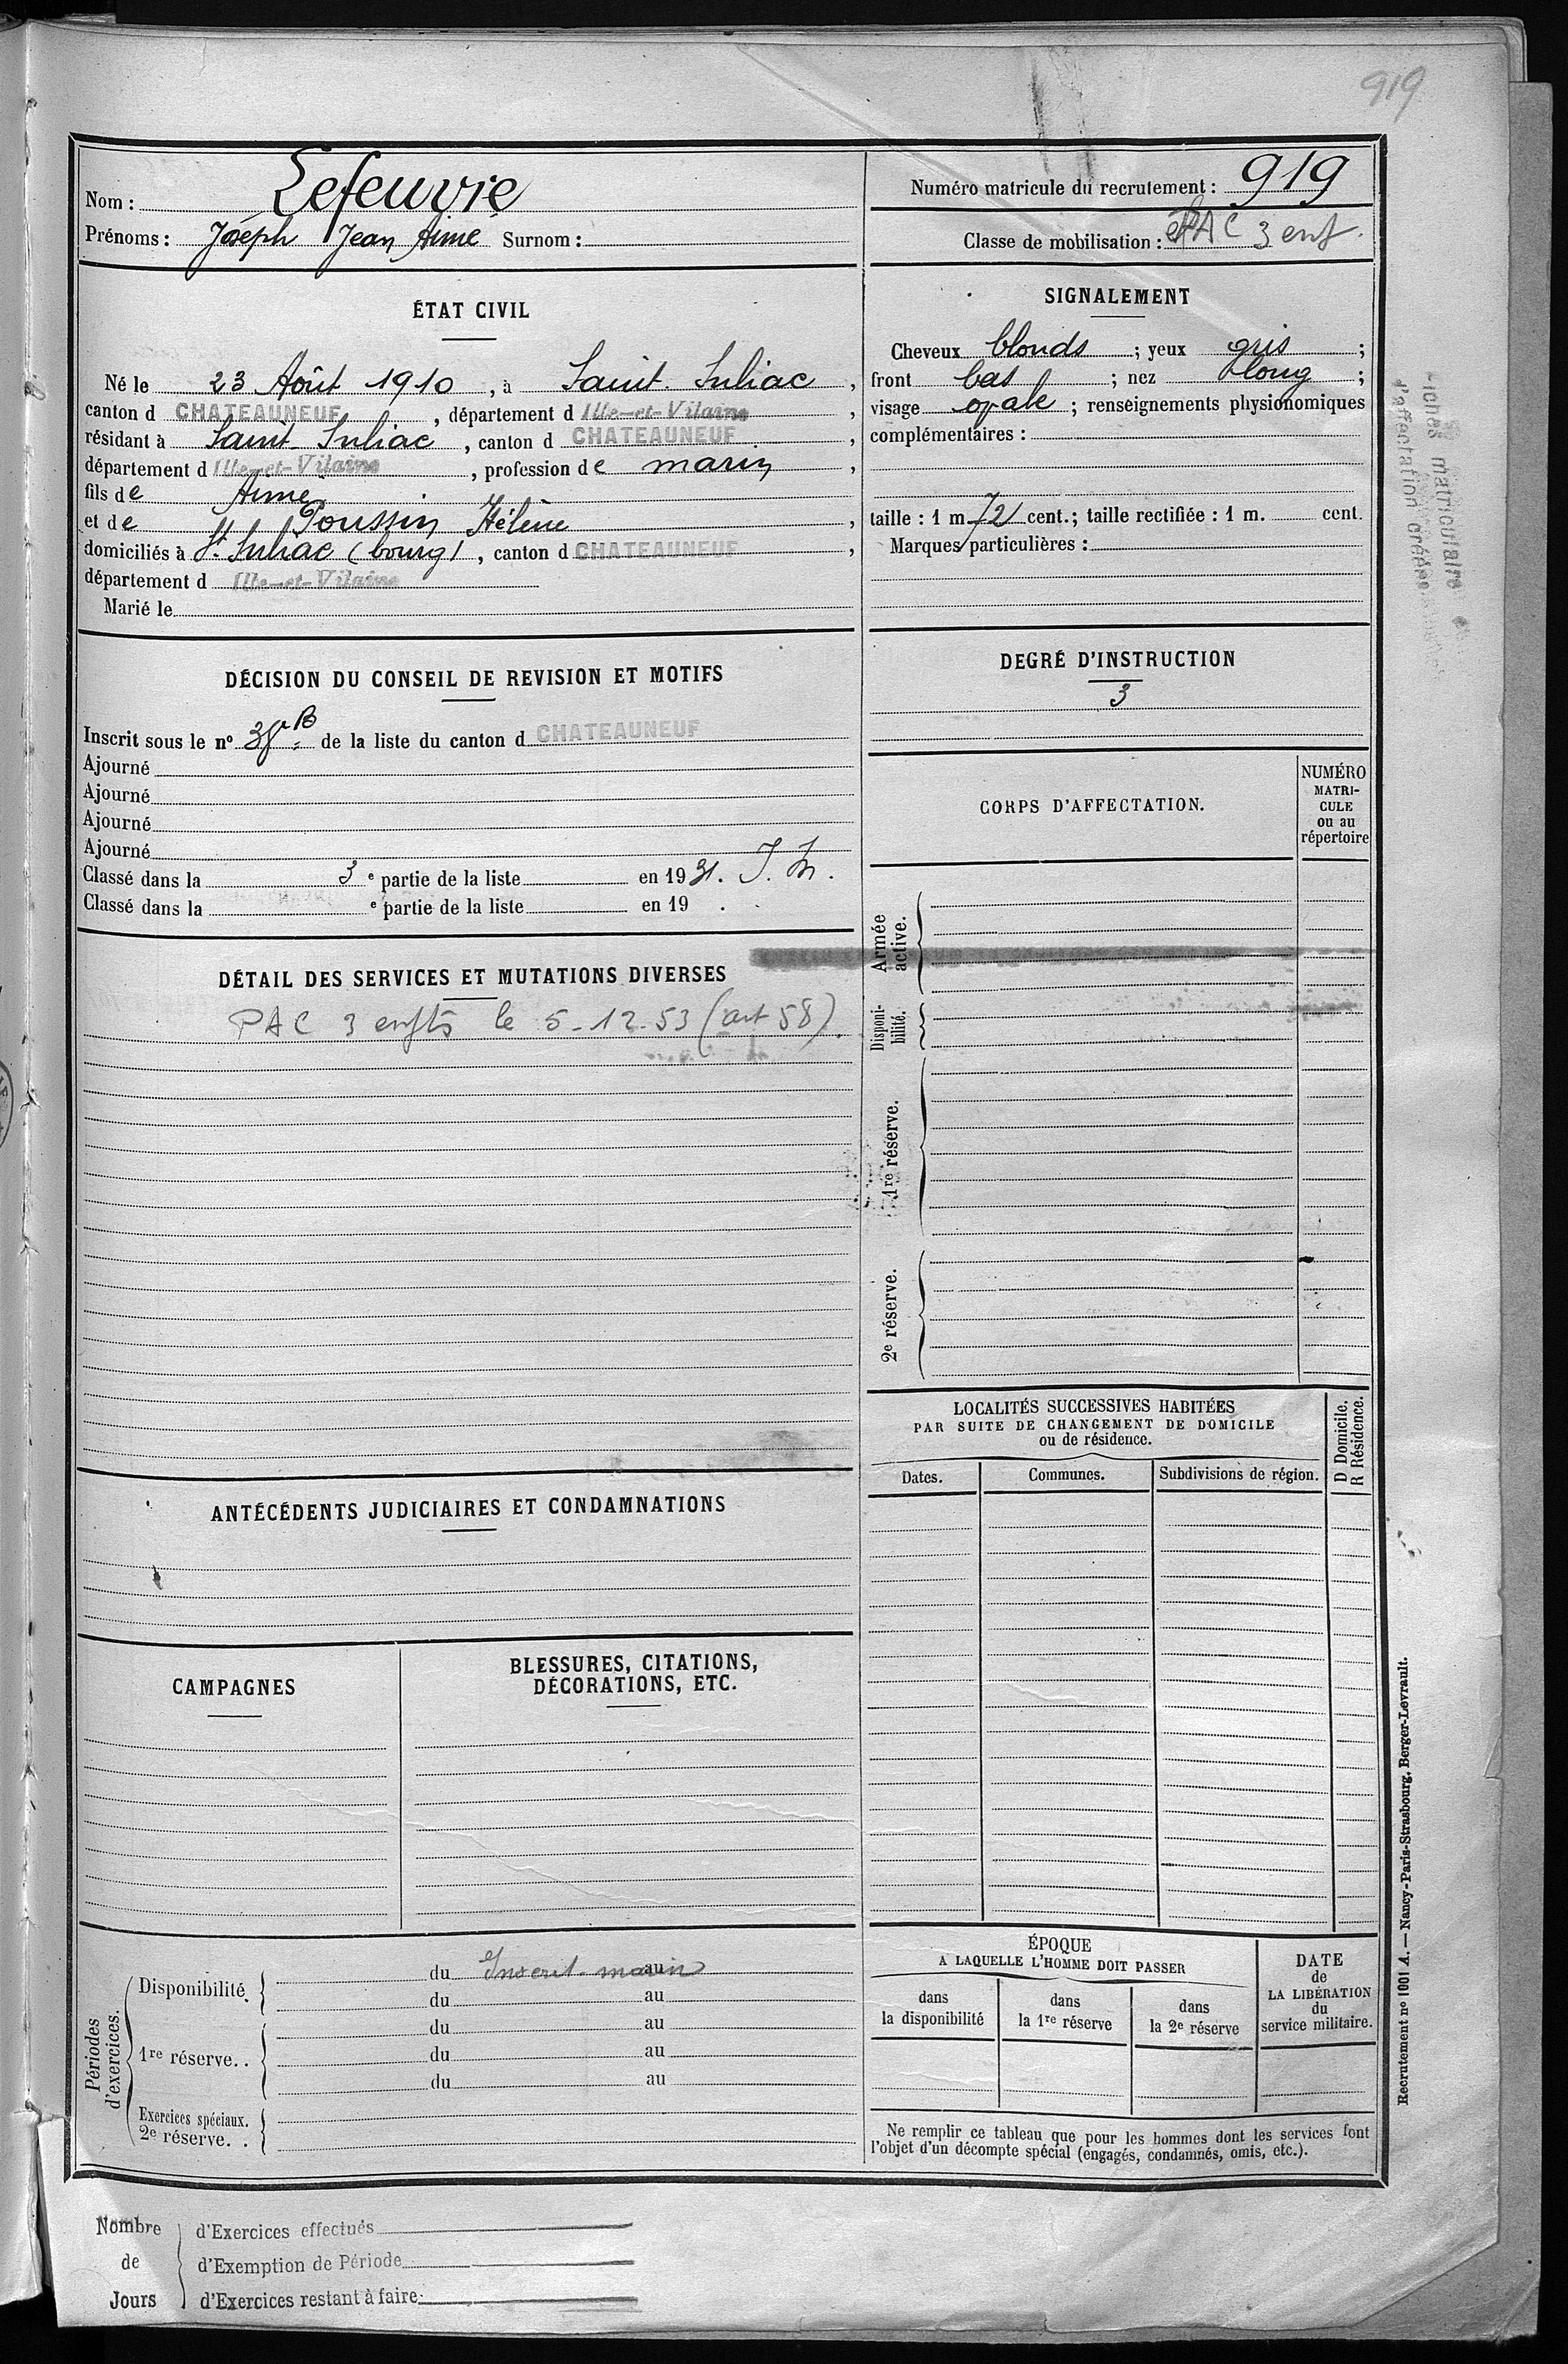 919
Nom : Lefeuvre
Prénoms : Joseph Jean Aimé Surnom :
Numéro matricule du recrutement : 919
Classe de mobilisation : PAC 3 enf.
ÉTAT CIVIL
Né le 23 Août 1910, à Saint-Suliac,
canton d CHATEAUNEUF, département d Ille-et-Vilaine,
résidant à Saint Suliac, canton d CHATEAUNEUF,
département d Ille-et-Vilaine, profession de marin,
fils de Aimé
et de Poussin Hélène,
domiciliés à St. Suliac (bourg), canton d CHATEAUNEUF,
département d Ille-et-Vilaine
Marié le
SIGNALEMENT
Cheveux blonds ; yeux gris ;
front bas ; nez long ;
visage ovale ; renseignements physionomiques
complémentaires :
taille : 1 m 72 cent. ; taille rectifiée : 1 m. cent.
Marques particulières :
DÉCISION DU CONSEIL DE REVISION ET MOTIFS
Inscrit sous le nº de la liste du canton d CHATEAUNEUF
Ajourné
Ajourné
Ajourné
Ajourné
Classé dans la 3 e partie de la liste en 1931. I. M.
Classé dans la e partie de la liste en 19 .
DEGRÉ D'INSTRUCTION
3
CORPS D'AFFECTATION.
NUMÉRO
MATRI-
CULE
ou au
répertoire
Armée
active.
Disponi-
bilité.
1re réserve.
2e réserve.
DÉTAIL DES SERVICES ET MUTATIONS DIVERSES
PAC 3 enfts le 5-12-53 (art 58).
LOCALITÉS SUCCESSIVES HABITÉES
PAR SUITE DE CHANGEMENT DE DOMICILE
ou de résidence.
D Domicile.
R Résidence.
Dates. Communes. Subdivisions de région.
ANTÉCÉDENTS JUDICIAIRES ET CONDAMNATIONS
CAMPAGNES
BLESSURES, CITATIONS,
DÉCORATIONS, ETC.
Périodes
d'exercices.
Disponibilité. du Inscrit marin au
du au
1re réserve. . du au
du au
du au
Exercices spéciaux.
2e réserve. .
ÉPOQUE
A LAQUELLE L'HOMME DOIT PASSER
dans
la disponibilité
dans
la 1re réserve
dans
la 2e réserve
DATE
de
LA LIBÉRATION
du
service militaire.
Ne remplir ce tableau que pour les hommes dont les services font
l'objet d'un décompte spécial (engagés, condamnés, omis, etc.).
Nombre
de
Jours
d'Exercices effectués
d'Exemption de Période
d'Exercices restant à faire
Fiches matriculaire et
d'affectation créées
Recrutement nº 1001 A. — Nancy-Paris-Strasbourg, Berger-Levrault.